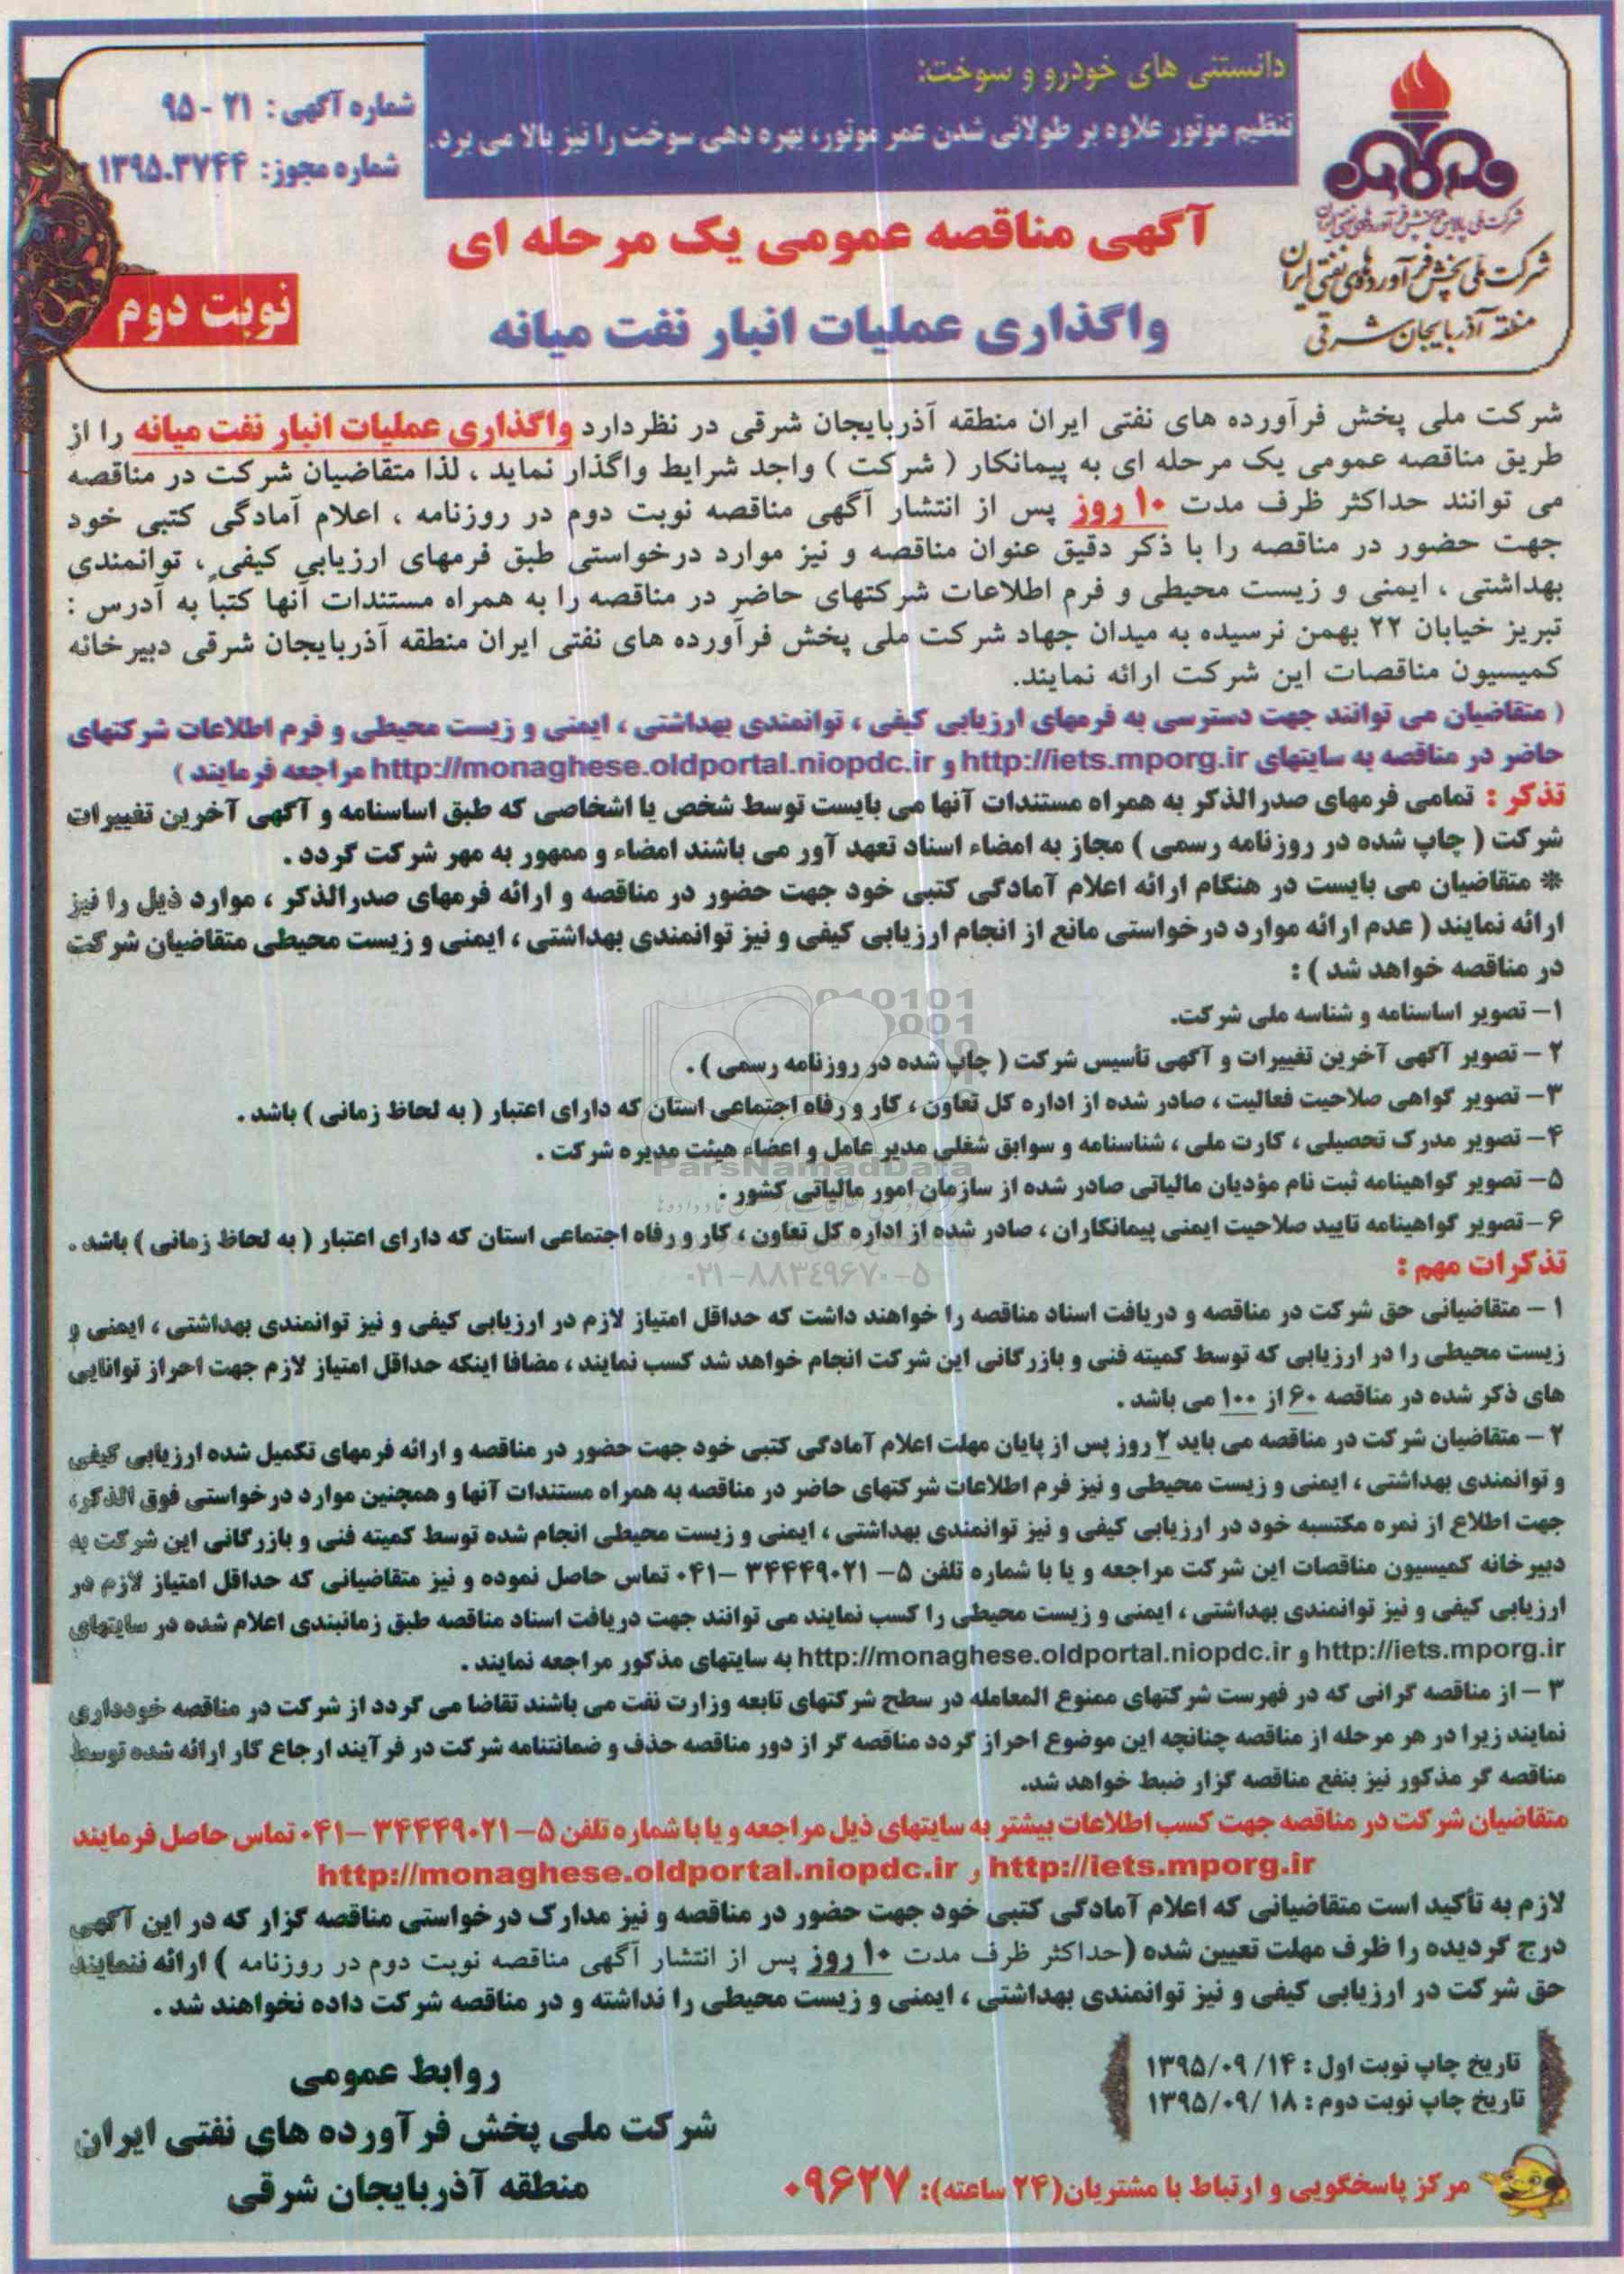 دانستنی های خودرو و سوخت:
تنظیم موتور علاوه بر طولانی شدن عمر موتور، بهره دهی سوخت را نیز بالا می برد.
شماره آگهی: ۲۱ - ۹۵
شماره مجوز: ۱۳۹۵.۳۷۴۴
شرکت ملی پالایش و پخش فرآورده‌های نفتی ایران
شرکت ملی پخش فرآورده‌های نفتی ایران
منطقه آذربایجان شرقی
آگهی مناقصه عمومی یک مرحله ای
واگذاری عملیات انبار نفت میانه
نوبت دوم
شرکت ملی پخش فرآورده های نفتی ایران منطقه آذربایجان شرقی در نظردارد واگذاری عملیات انبار نفت میانه را از
طریق مناقصه عمومی یک مرحله ای به پیمانکار ( شرکت ) واجد شرایط واگذار نماید ، لذا متقاضیان شرکت در مناقصه
می توانند حداکثر ظرف مدت ۱۰ روز پس از انتشار آگهی مناقصه نوبت دوم در روزنامه ، اعلام آمادگی کتبی خود
جهت حضور در مناقصه را با ذکر دقیق عنوان مناقصه و نیز موارد درخواستی طبق فرمهای ارزیابی کیفی ، توانمندی
بهداشتی ، ایمنی و زیست محیطی و فرم اطلاعات شرکتهای حاضر در مناقصه را به همراه مستندات آنها کتباً به آدرس :
تبریز خیابان ۲۲ بهمن نرسیده به میدان جهاد شرکت ملی پخش فرآورده های نفتی ایران منطقه آذربایجان شرقی دبیرخانه
کمیسیون مناقصات این شرکت ارائه نمایند.
( متقاضیان می توانند جهت دسترسی به فرمهای ارزیابی کیفی ، توانمندی بهداشتی ، ایمنی و زیست محیطی و فرم اطلاعات شرکتهای
حاضر در مناقصه به سایتهای http://iets.mporg.ir و http://monaghese.oldportal.niopdc.ir مراجعه فرمایند )
تذکر : تمامی فرمهای صدرالذکر به همراه مستندات آنها می بایست توسط شخص یا اشخاصی که طبق اساسنامه و آگهی آخرین تغییرات
شرکت ( چاپ شده در روزنامه رسمی ) مجاز به امضاء اسناد تعهد آور می باشند امضاء و ممهور به مهر شرکت گردد .
* متقاضیان می بایست در هنگام ارائه اعلام آمادگی کتبی خود جهت حضور در مناقصه و ارائه فرمهای صدرالذکر ، موارد ذیل را نیز
ارائه نمایند ( عدم ارائه موارد درخواستی مانع از انجام ارزیابی کیفی و نیز توانمندی بهداشتی ، ایمنی و زیست محیطی متقاضیان شرکت
در مناقصه خواهد شد ) :
۱- تصویر اساسنامه و شناسه ملی شرکت.
۲ - تصویر آگهی آخرین تغییرات و آگهی تأسیس شرکت ( چاپ شده در روزنامه رسمی ) .
۳- تصویر گواهی صلاحیت فعالیت ، صادر شده از اداره کل تعاون ، کار و رفاه اجتماعی استان که دارای اعتبار ( به لحاظ زمانی ) باشد .
۴- تصویر مدرک تحصیلی ، کارت ملی ، شناسنامه و سوابق شغلی مدیر عامل و اعضاء هیئت مدیره شرکت .
ParsNamadData
۵- تصویر گواهینامه ثبت نام مؤدیان مالیاتی صادر شده از سازمان امور مالیاتی کشور .
۶- تصویر گواهینامه تایید صلاحیت ایمنی پیمانکاران ، صادر شده از اداره کل تعاون ، کار و رفاه اجتماعی استان که دارای اعتبار ( به لحاظ زمانی ) باشد .
۰۲۱-۸۸۳۴۹۶۷۰-۵
تذکرات مهم :
۱ - متقاضیانی حق شرکت در مناقصه و دریافت اسناد مناقصه را خواهند داشت که حداقل امتیاز لازم در ارزیابی کیفی و نیز توانمندی بهداشتی ، ایمنی و
زیست محیطی را در ارزیابی که توسط کمیته فنی و بازرگانی این شرکت انجام خواهد شد کسب نمایند ، مضافا اینکه حداقل امتیاز لازم جهت احراز توانایی
های ذکر شده در مناقصه ۶۰ از ۱۰۰ می باشد .
۲ - متقاضیان شرکت در مناقصه می باید ۲ روز پس از پایان مهلت اعلام آمادگی کتبی خود جهت حضور در مناقصه و ارائه فرمهای تکمیل شده ارزیابی کیفی
و توانمندی بهداشتی ، ایمنی و زیست محیطی و نیز فرم اطلاعات شرکتهای حاضر در مناقصه به همراه مستندات آنها و همچنین موارد درخواستی فوق الذکر،
جهت اطلاع از نمره مکتسبه خود در ارزیابی کیفی و نیز توانمندی بهداشتی ، ایمنی و زیست محیطی انجام شده توسط کمیته فنی و بازرگانی این شرکت به
دبیرخانه کمیسیون مناقصات این شرکت مراجعه و یا با شماره تلفن ۵- ۳۴۴۴۹۰۲۱ -۰۴۱ تماس حاصل نموده و نیز متقاضیانی که حداقل امتیاز لازم در
ارزیابی کیفی و نیز توانمندی بهداشتی ، ایمنی و زیست محیطی را کسب نمایند می توانند جهت دریافت اسناد مناقصه طبق زمانبندی اعلام شده در سایتهای
http://iets.mporg.ir و http://monaghese.oldportal.niopdc.ir به سایتهای مذکور مراجعه نمایند .
۳ - از مناقصه گرانی که در فهرست شرکتهای ممنوع المعامله در سطح شرکتهای تابعه وزارت نفت می باشند تقاضا می گردد از شرکت در مناقصه خودداری
نمایند زیرا در هر مرحله از مناقصه چنانچه این موضوع احراز گردد مناقصه گر از دور مناقصه حذف و ضمانتنامه شرکت در فرآیند ارجاع کار ارائه شده توسط
مناقصه گر مذکور نیز بنفع مناقصه گزار ضبط خواهد شد.
متقاضیان شرکت در مناقصه جهت کسب اطلاعات بیشتر به سایتهای ذیل مراجعه و یا با شماره تلفن ۵- ۳۴۴۴۹۰۲۱ -۰۴۱ تماس حاصل فرمایند
http://iets.mporg.ir و http://monaghese.oldportal.niopdc.ir
لازم به تأکید است متقاضیانی که اعلام آمادگی کتبی خود جهت حضور در مناقصه و نیز مدارک درخواستی مناقصه گزار که در این آگهی
درج گردیده را ظرف مهلت تعیین شده (حداکثر ظرف مدت ۱۰ روز پس از انتشار آگهی مناقصه نوبت دوم در روزنامه ) ارائه ننمایند
حق شرکت در ارزیابی کیفی و نیز توانمندی بهداشتی ، ایمنی و زیست محیطی را نداشته و در مناقصه شرکت داده نخواهند شد .
تاریخ چاپ نوبت اول : ۱۴ /۱۳۹۵/۰۹
تاریخ چاپ نوبت دوم : ۱۸ /۱۳۹۵/۰۹
روابط عمومی
شرکت ملی پخش فرآورده های نفتی ایران
منطقه آذربایجان شرقی
مرکز پاسخگویی و ارتباط با مشتریان(۲۴ ساعته): ۰۹۶۲۷